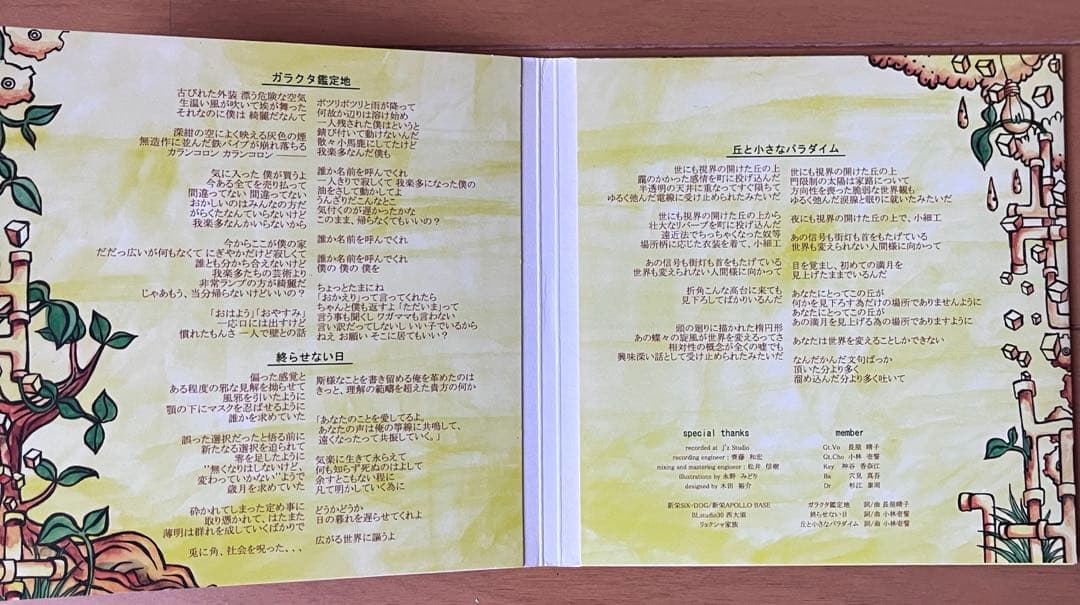 ガラクタ鑑定地
古びれた外装 漂う危険な空気
生温い風が吹いて埃が舞った
それなのに僕は 綺麗だなんて
深紺の空によく映える灰色の煙
無造作に並んだ鉄パイプが崩れ落ちる
カランコロン カランコロン———
気に入った 僕が買うよ
今ある全てを売り払って
間違ってない 間違ってない
おかしいのはみんなの方だ
がらくたなんていらないけど
我楽多なんかいらないから
今からここが僕の家
だだっ広いが何もなくて にぎやかだけど寂しくて
誰とも分かち合えないけど
我楽多たちの芸術より
非常ランプの方が綺麗だ
じゃあもう、当分帰らないけどいいの？
「おはよう」「おやすみ」
一応口には出すけど
慣れたもんさ 一人で壁との話
ポツリポツリと雨が降って
何故か辺りは溶け始め
一人残された僕はというと
錆び付いて動けないんだ
散々小馬鹿にしてたけど
我楽多なんだ僕も
誰か名前を呼んでくれ
一人きりで寂しくて 我楽多になった僕の
油をさして動かしてよ
うんざりだこんなとこ
気付くのが遅かったかな
このまま、帰らなくてもいいの？
誰か名前を呼んでくれ
誰か名前を呼んでくれ
僕の 僕の 僕を
ちょっとたまにね
「おかえり」って言ってくれたら
ちゃんと僕も返すよ「ただいま」って
言う事も聞くし ワガママも言わない
言い訳だってしないし いい子でいるから
ねえ お願い そこに居てもいい？
終らせない日
偏った感覚と
ある程度の邪な見解を拗らせて
風邪を引いたように
顎の下にマスクを忍ばせるように
誰かを求めていた
誤った選択だったと悟る前に
新たなる選択を迫られて
零を足したように
"無くなりはしないけど、
変わっていかない"ようで
歳月を求めていた
砕かれてしまった定め事に
取り憑かれて、はたまた
薄明は群れを成していくばかりで
兎に角、社会を呪った、、、
斯様なことを書き留める俺を革めたのは
きっと、理解の範疇を超えた貴方の何か
「あなたのことを愛してるよ。
あなたの声は俺の箏線に共鳴して、
遠くなったって共振していく。」
気楽に生きて永らえて
何も知らず死ぬのはよして
余すとこもない程に
凡て明かしていく為に
どうかどうか
日の暮れを遅らせてくれよ
広がる世界に謳うよ
丘と小さなパラダイム
世にも視界の開けた丘の上
靄のかかった感情を町に投げ込んだ
半透明の天井に重なってすぐ隠ちて
ゆるく弛んだ電線に受け止められたみたいだ
世にも視界の開けた丘の上から
壮大なリバーブを町に投げ込んだ
遠近法でちっちゃくなった奴等
場所柄に応じた衣装を着て、小細工
あの信号も街灯も首をもたげている
世界も変えられない人間様に向かって
折角こんな高台に来ても
見下ろしてばかりいるんだ
頭の廻りに描かれた楕円形
あの蝶々の旋風が世界を変えるってさ
相対性の概念が全くの嘘でも
興味深い話として受け止められたみたいだ
世にも視界の開けた丘の上
門限制の太陽は家路について
方向性を喪った脆弱な世界観も
ゆるく弛んだ涙腺と眠りに就いたみたいだ
夜にも視界の開けた丘の上で、小細工
あの信号も街灯も首をもたげている
世界も変えられない人間様に向かって
目を覚まし、初めての満月を
見上げたままでいるんだ
あなたにとってこの丘が
何かを見下ろす為だけの場所でありませんように
あなたにとってこの丘が
あの満月を見上げる為の場所でありますように
あなたは世界を変えることしかできない
なんだかんだ文句ばっか
頂いた分より多く
溜め込んだ分より多く吐いて
special thanks
recorded at J'z Studio
recording engineer : 齊藤 和宏
mixing and mastering engineer : 松井 信樹
illustrations by 永野 みどり
designed by 木田 裕介
新栄SiX-DOG/新栄APOLLO BASE
BLstudio30 西大須
リョクシャ家族
member
Gt.Vo 長屋 晴子
Gt.Cho 小林 壱誓
Key 神谷 香奈江
Ba 穴見 真吾
Dr 杉江 廉司
ガラクタ鑑定地 詞/曲 長屋晴子
終らせない日 詞/曲 小林壱誓
丘と小さなパラダイム 詞/曲 小林壱誓